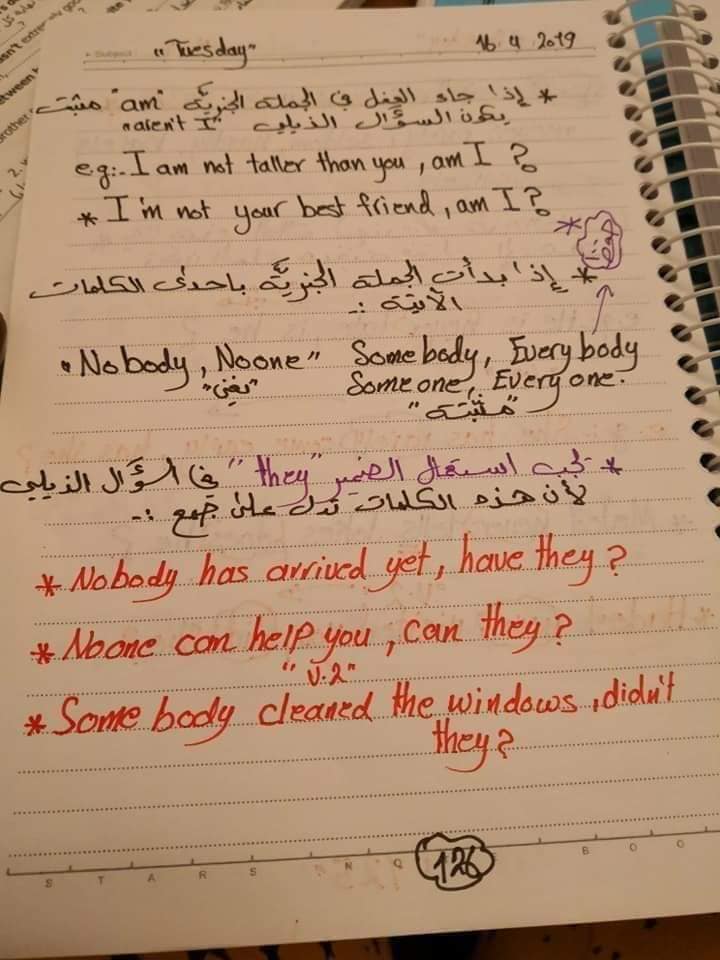 Subject: "Tuesday" 16 4 2019
* إذا جاء الفعل في الجملة الخبرية "am" مثبت
يكون السؤال الذيلي "aren't I"
e.g:- I am not taller than you, am I ?
* I'm not your best friend, am I ?
* إذا بدأت الجملة الخبرية باحدى الكلمات
الآتية :-
"Nobody, Noone" Somebody, Everybody
"نفي" Someone, Everyone.
"مثبتة"
* يجب استعمال الضمير "they" في السؤال الذيلي
لأن هذه الكلمات تدل على جمع :-
* Nobody has arrived yet, have they ?
* Noone can help you, can they ?
"V.2"
* Some body cleaned the windows, didn't
they ?
126
S T A R S N O B O O